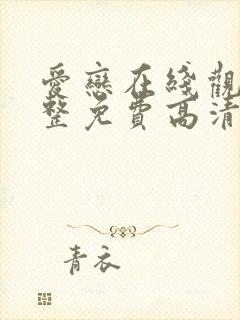 愛戀在綫觀
整免費高清
青衣